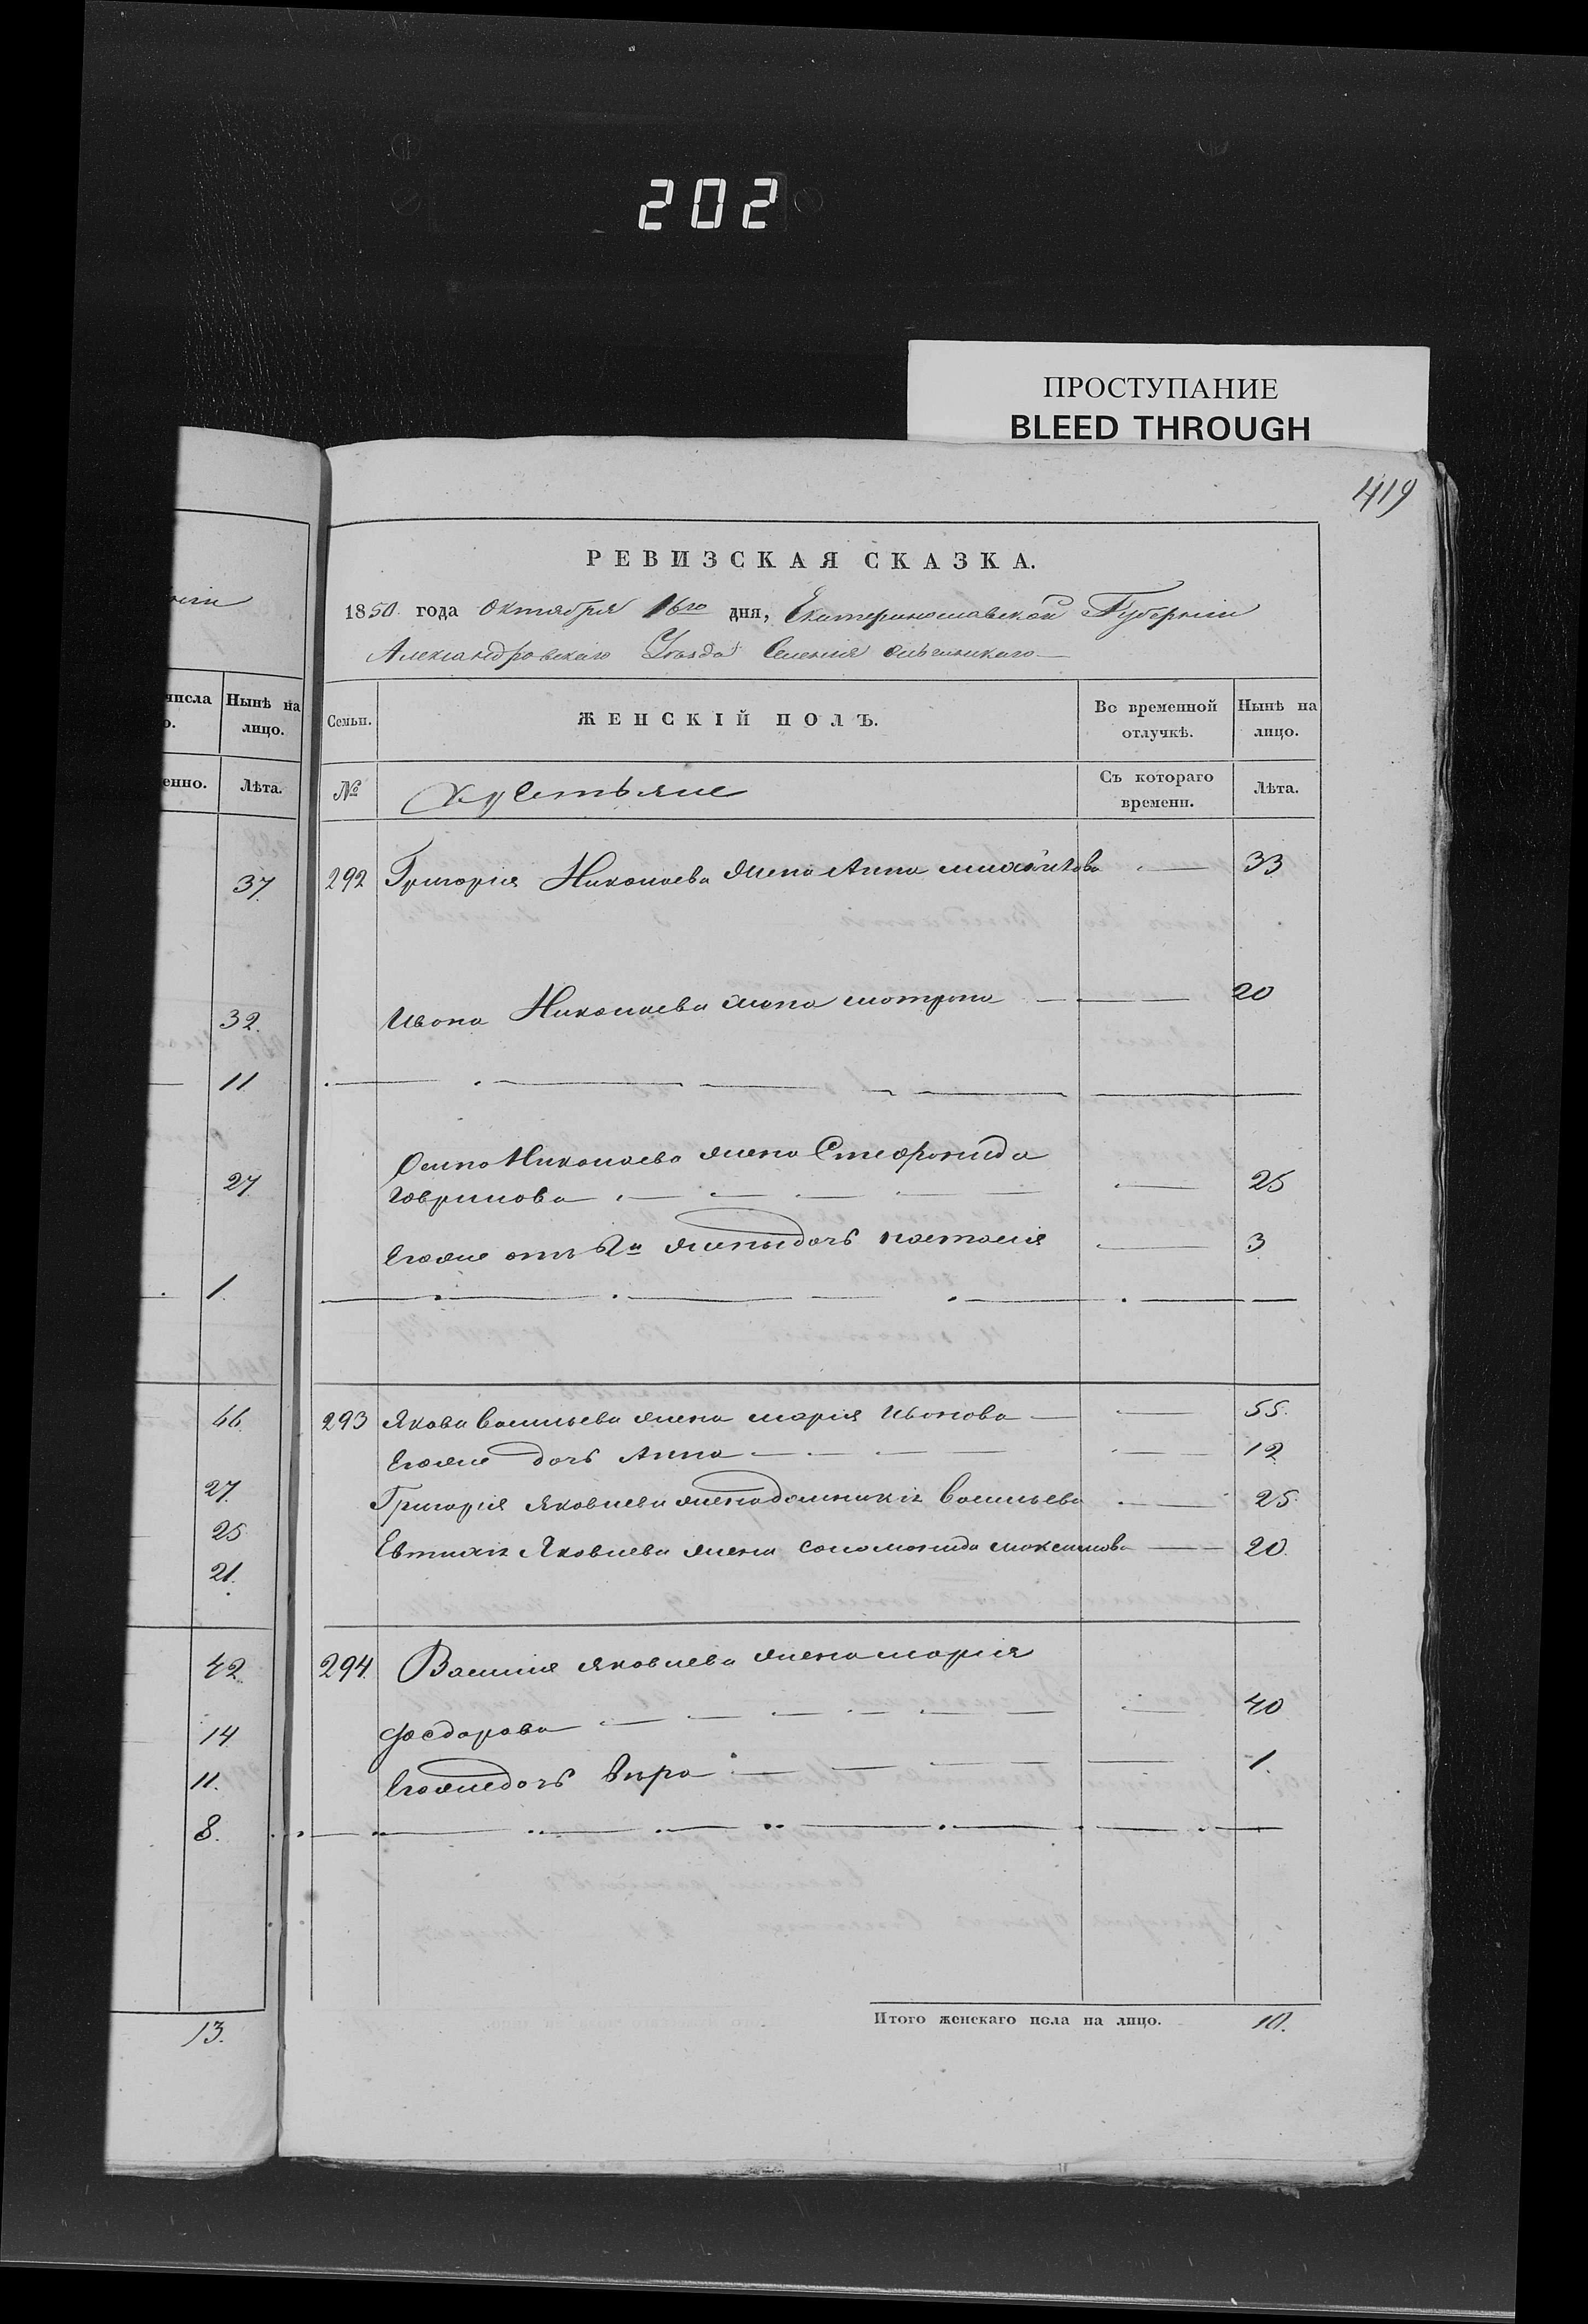 202
ПРОСТУПАНИЕ
BLEED THROUGH
419
РЕВИЗСКАЯ СКАЗКА.
1850 года Октября 16го дня, Екатеринославской Губерніи
Александровскаго Уѣзда Селенія
числа Нынѣ на лицо.
Семьи. ЖЕНСКІЙ ПОЛЪ. Во временной отлучкѣ. Нынѣ на лицо.
енно. Лѣта.
№ Съ котораго времени. Лѣта.
37.
292 Григорія Николаева жена Анна 33
32.
Ивана Николаева жена Мотрона 20
11
Осипа Николаева жена Степонида
27
Гаврилова 25
Егоже отъ 1й жены дочь Настасія 3
1
46
293 Якова Васильева жена Марія Иванова 55.
Егоже дочь Анна 12
27.
Григорія Яковлева жена Домникія Васильева 25.
25
Евтихія Яковлева жена Соломонида Максимова 20.
21.
42
294. Василія Яковлева жена Марія
14
Федорова 40
11.
Егоже дочь Вѣра 1.
8.
13.
Итого женскаго пола на лицо. 10.